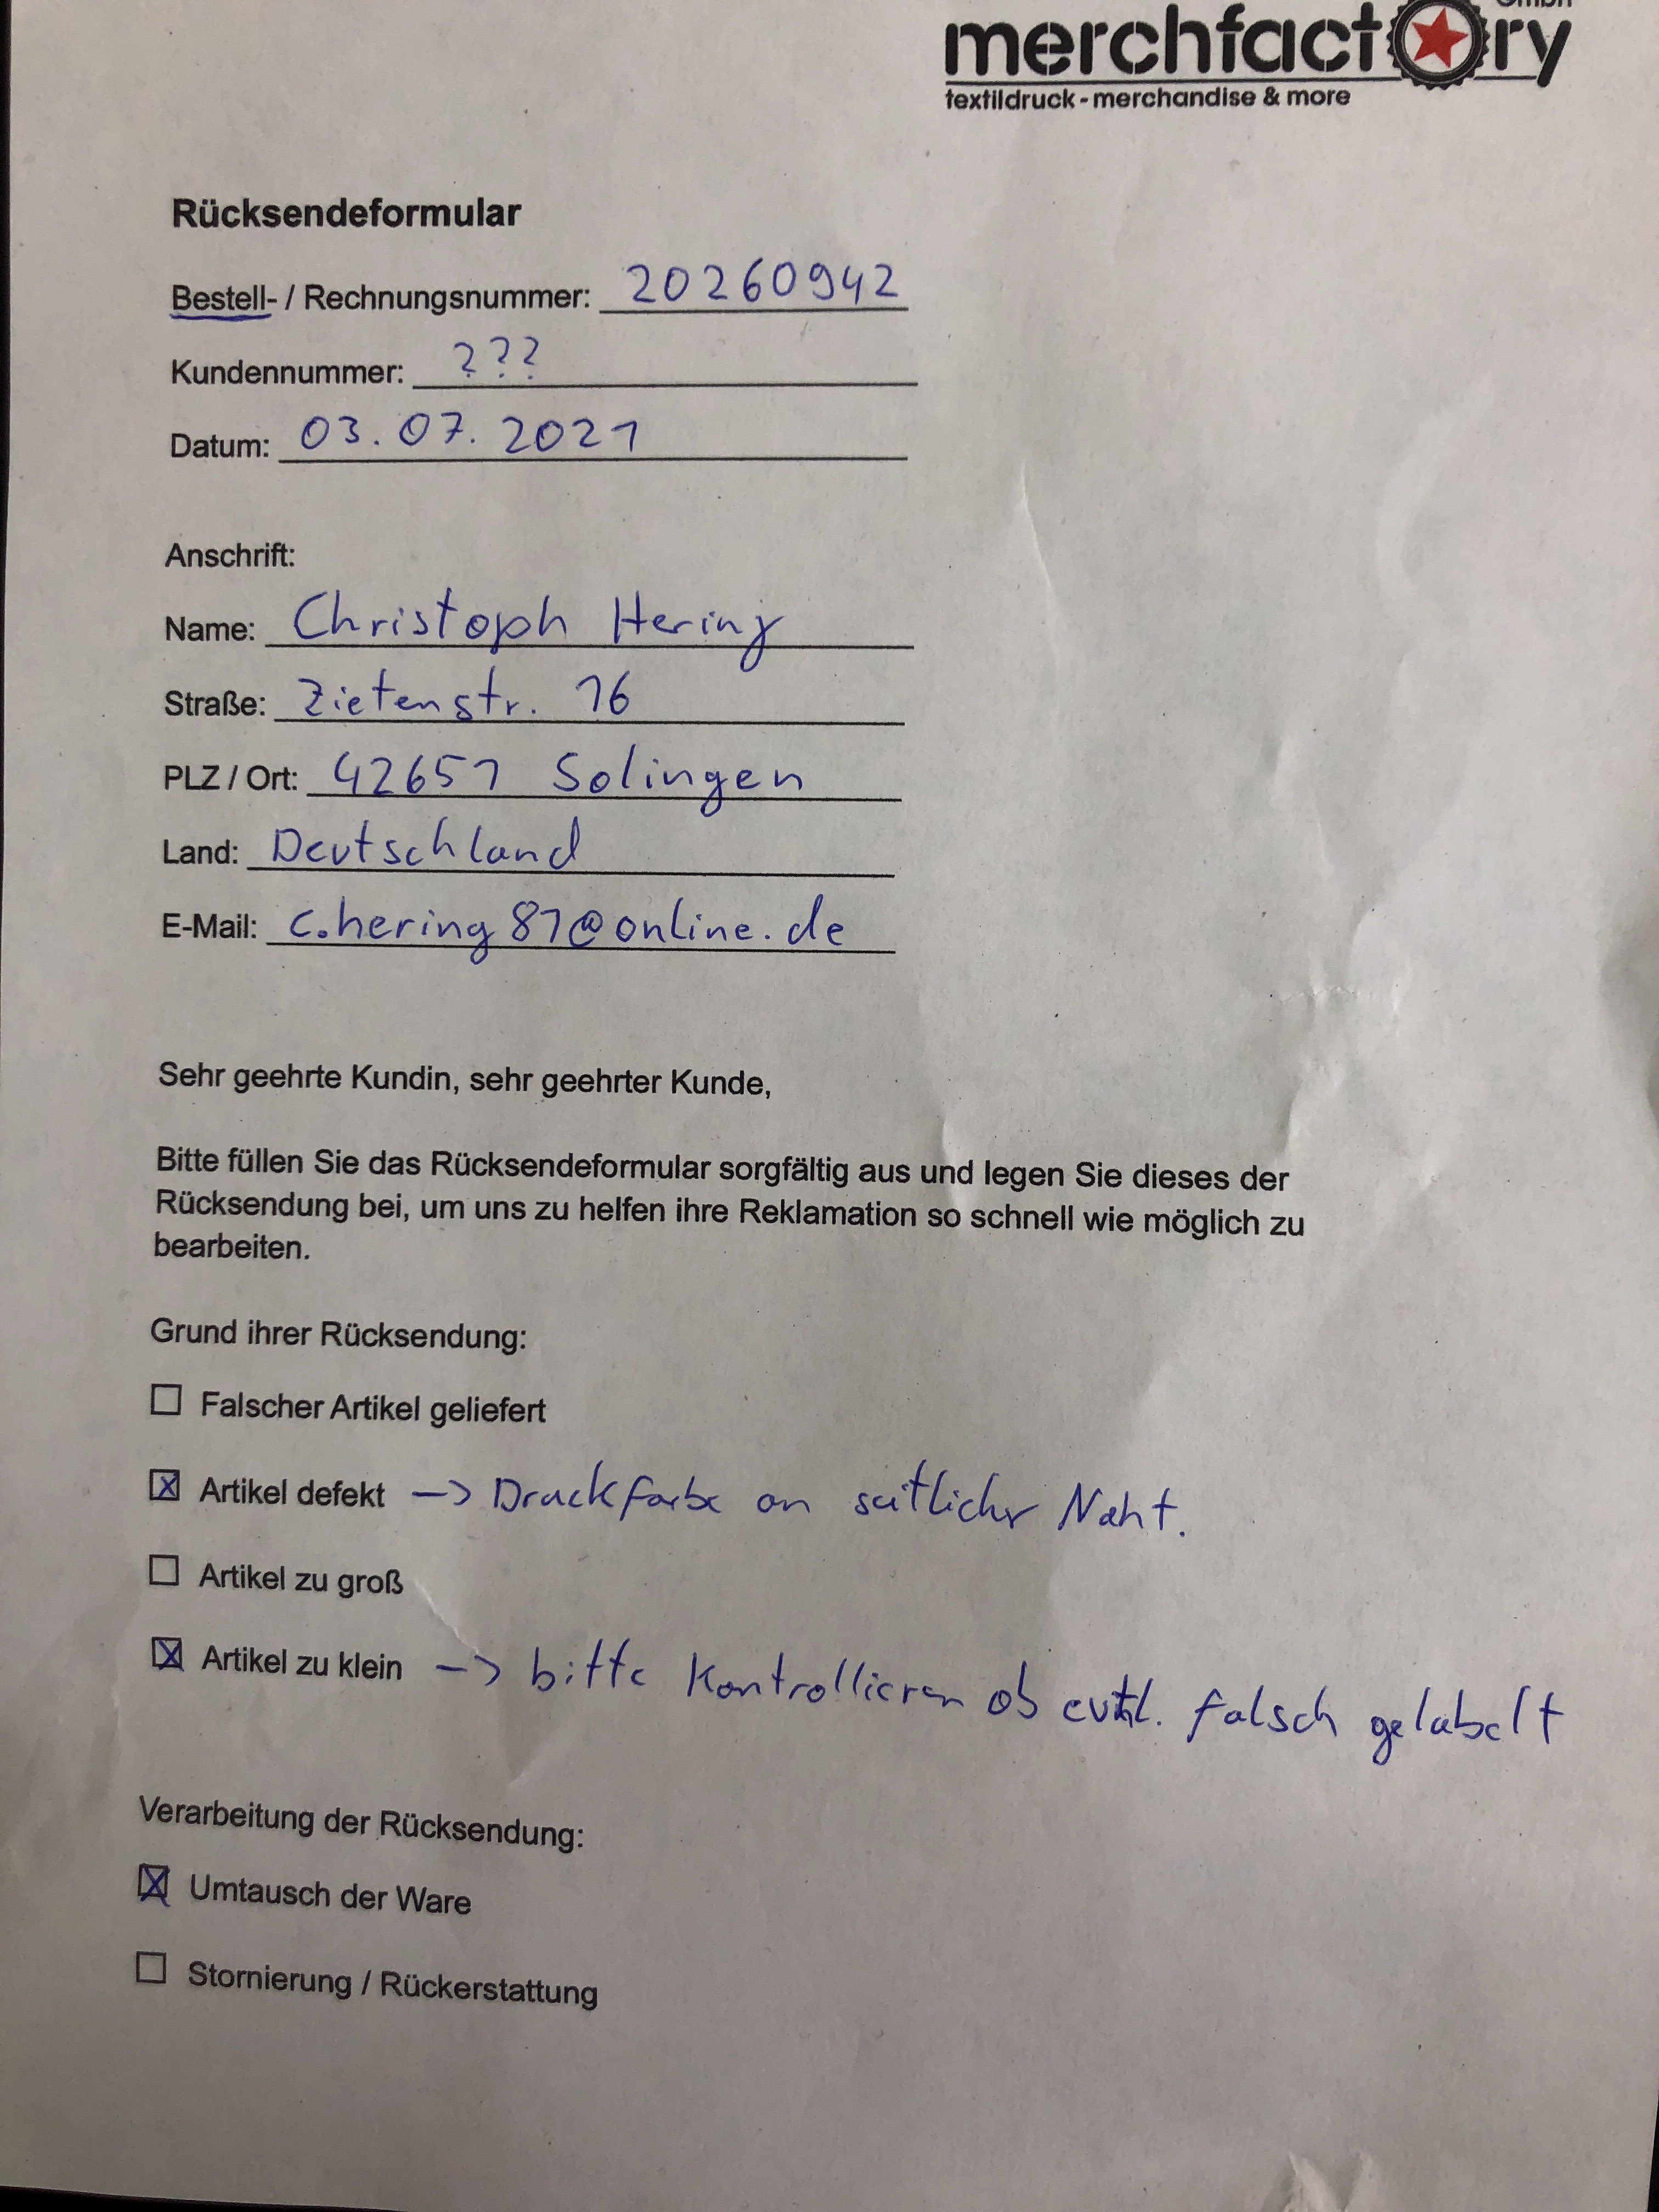 GmbH
merchfactory
textildruck - merchandise & more
Rücksendeformular
Bestell- / Rechnungsnummer: 20260942
Kundennummer: ???
Datum: 03.07.2021
Anschrift:
Name: Christoph Hering
Straße: Zietenstr. 16
PLZ / Ort: 42651 Solingen
Land: Deutschland
E-Mail: c.hering81@online.de
Sehr geehrte Kundin, sehr geehrter Kunde,
Bitte füllen Sie das Rücksendeformular sorgfältig aus und legen Sie dieses der
Rücksendung bei, um uns zu helfen ihre Reklamation so schnell wie möglich zu
bearbeiten.
Grund ihrer Rücksendung:
☐ Falscher Artikel geliefert
☒ Artikel defekt —> Druckfarbe an seitlicher Naht.
☐ Artikel zu groß
☒ Artikel zu klein —> bitte Kontrollieren ob evtl. falsch gelabelt
Verarbeitung der Rücksendung:
☒ Umtausch der Ware
☐ Stornierung / Rückerstattung